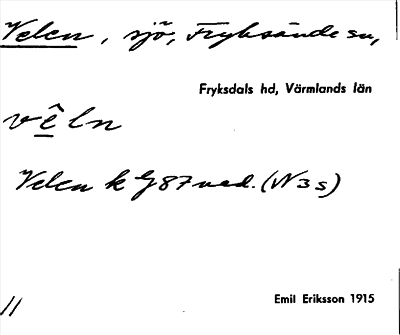 Velen, sjö, Fryksände sn,
Fryksdals hd, Värmlands län
vêln
Velen k G87 ned. (N3s)
Emil Eriksson 1915
11